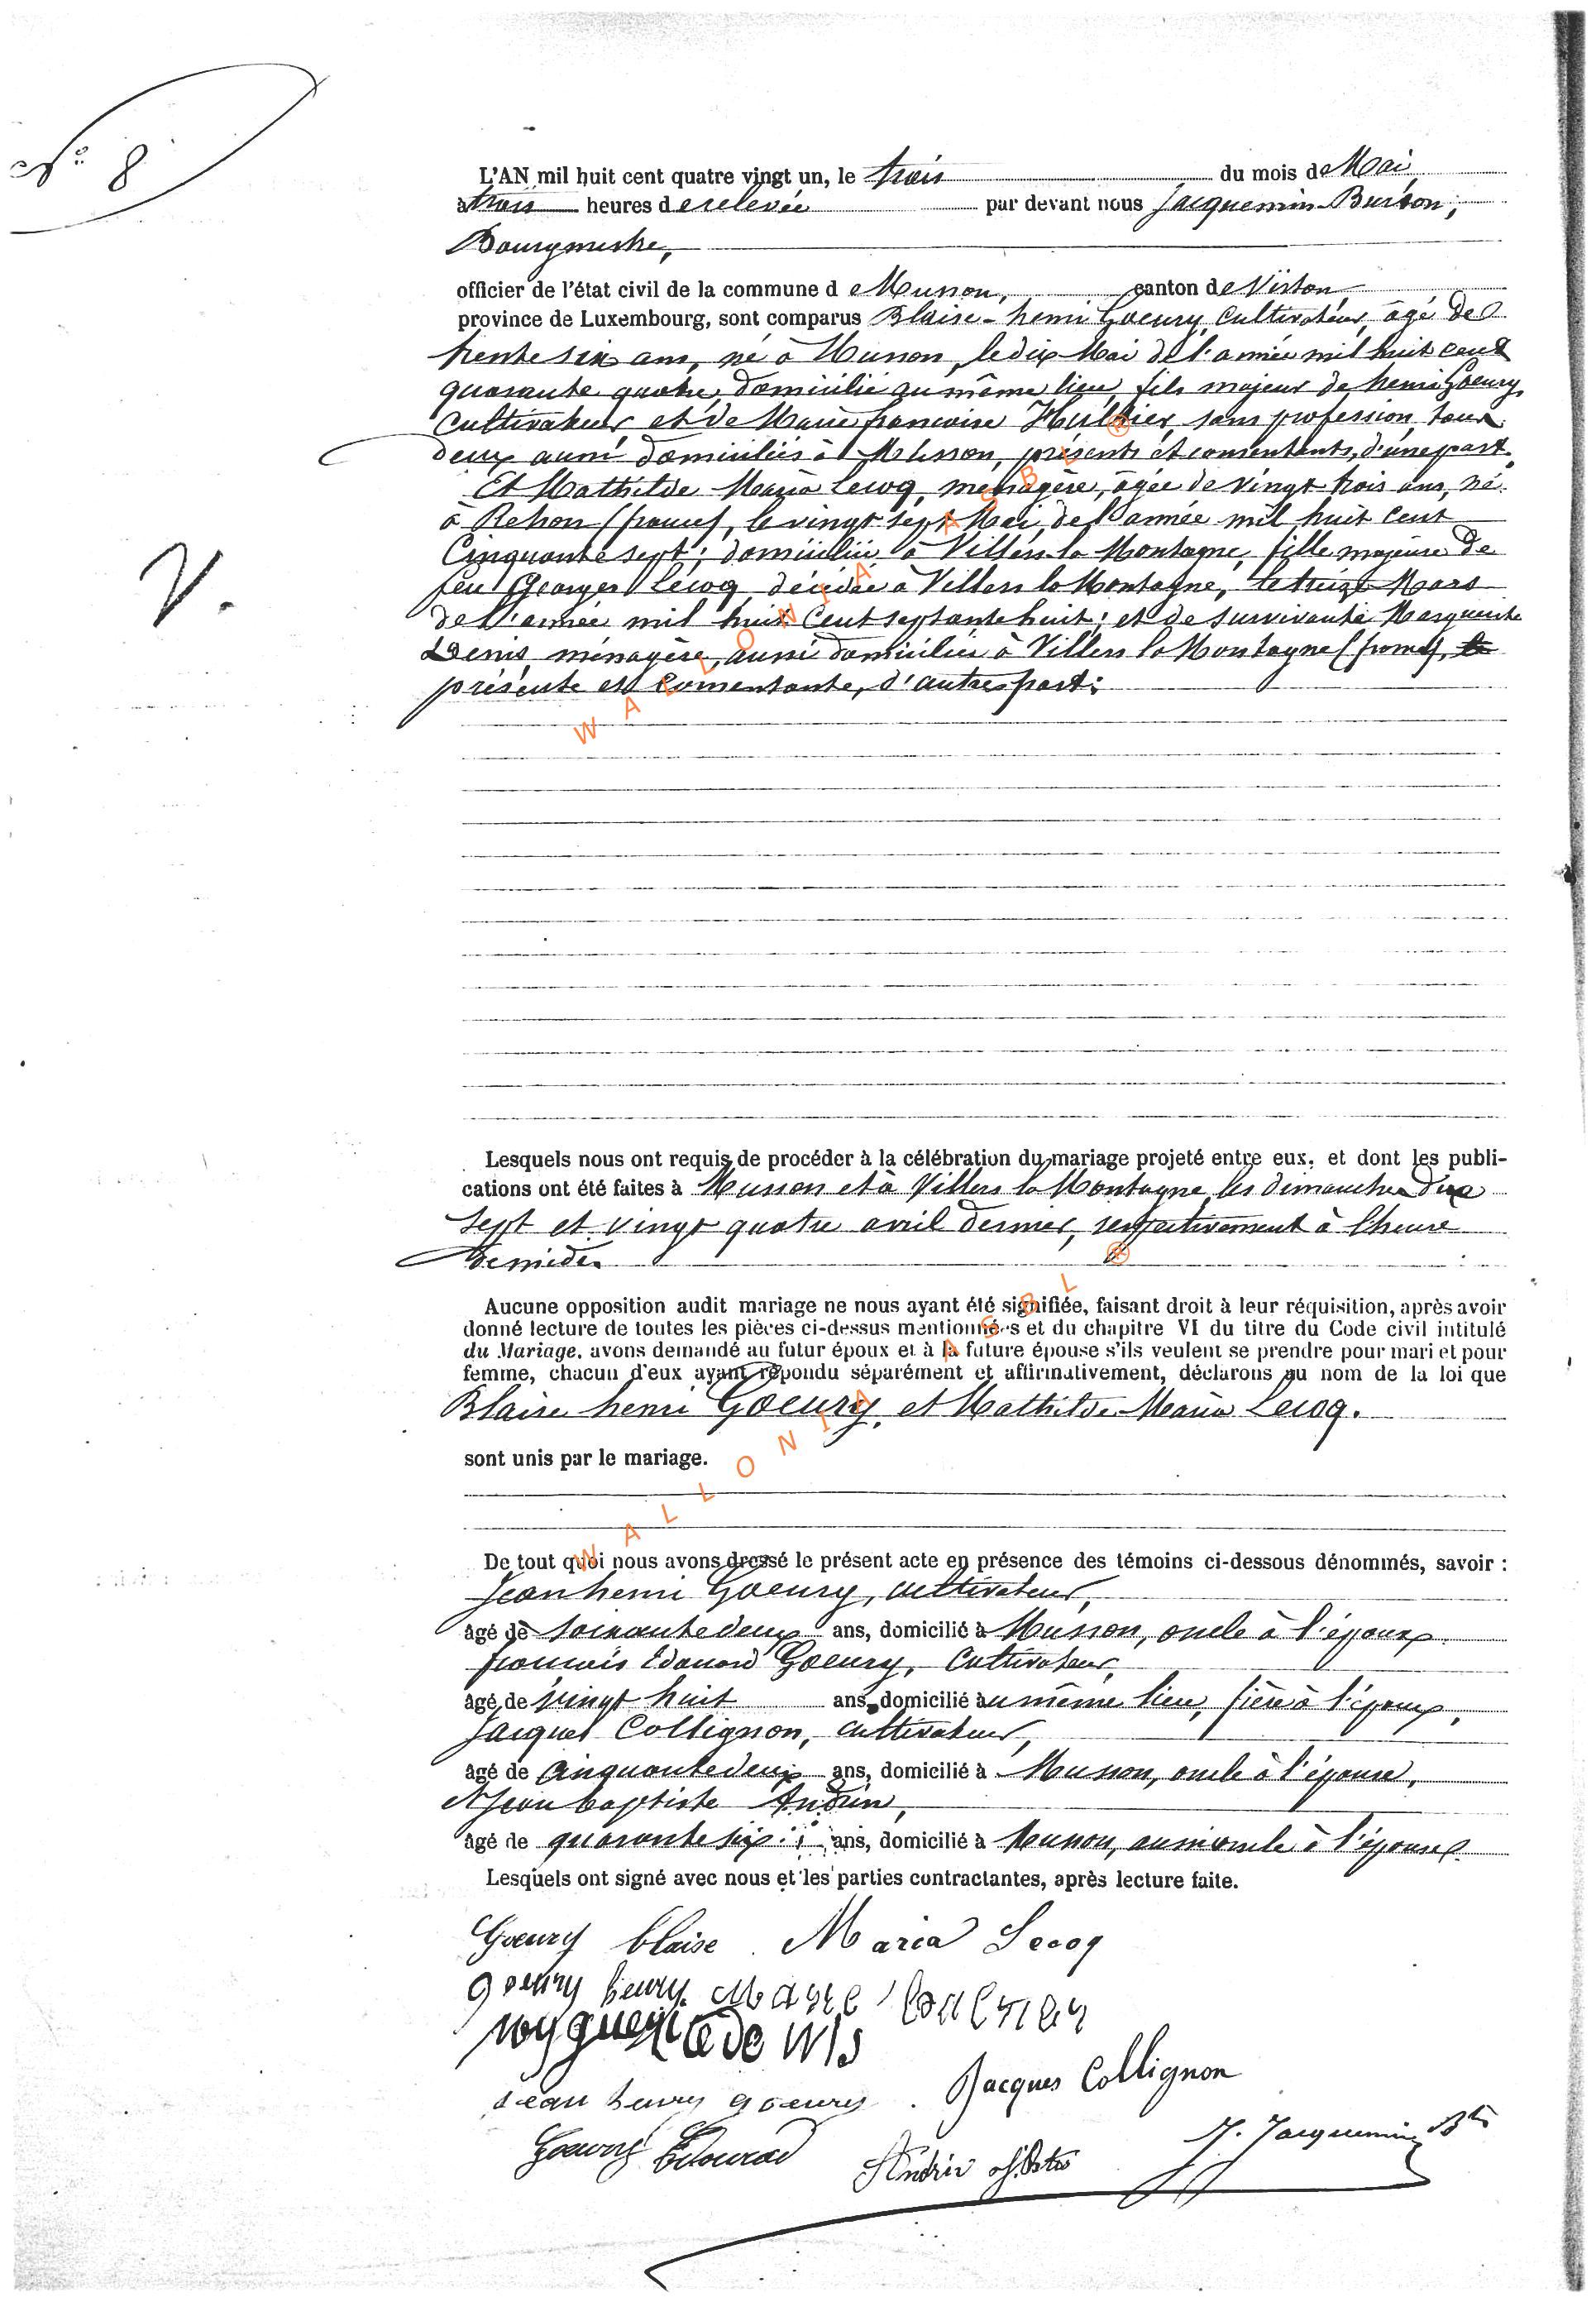 N° 8
L'AN mil huit cent quatre vingt un, le trois du mois de Mai
à trois heures de relevée par devant nous Jacquemin-Burton,
Bourgmestre,
officier de l'état civil de la commune de Musson, canton de Virton
province de Luxembourg, sont comparus Blaise-henri Goeury, Cultivateur, âgé de
trente six ans, né à Musson, le dix Mai de l'année mil huit cent
quarante quatre, domicilié au même lieu, fils majeur de henri Goeury,
Cultivateur et de Marie françoise sans profession, tous
deux aussi domiciliés à Musson, présents et consentants, d'une part.
Et Mathilde Maria Lecoq, ménagère, âgée de vingt trois ans, né
à Rehon (france), le vingt sept Mai de l'année mil huit cent
Cinquante sept; domiciliée à Villers la Montagne, fille majeure de
feu Georges Lecoq, décédé à Villers la Montagne, le treize Mars
de l'année mil huit Cent septante huit; et de survivante Marguerite
Denis, ménagère, aussi domiciliée à Villers la Montagne (france),
présente et consentante, d'autre part:
V.
Lesquels nous ont requis de procéder à la célébration du mariage projeté entre eux, et dont les publi-
cations ont été faites à Musson et à Villers la Montagne, les dimanches dix
sept et vingt quatre avril dernier, respectivement à l'heure
de midi.
Aucune opposition audit mariage ne nous ayant été signifiée, faisant droit à leur réquisition, après avoir
donné lecture de toutes les pièces ci-dessus mentionnées et du chapitre VI du titre du Code civil intitulé
du Mariage, avons demandé au futur époux et à la future épouse s'ils veulent se prendre pour mari et pour
femme, chacun d'eux ayant répondu séparément et affirmativement, déclarons au nom de la loi que
Blaise henri Goeury, et Mathilde Maria Lecoq.
sont unis par le mariage.
De tout quoi nous avons dressé le présent acte en présence des témoins ci-dessous dénommés, savoir :
Jean henri Goeury, cultivateur,
âgé de soixante deux ans, domicilié à Musson, oncle à l'époux
françois Edouard Goeury, Cultivateur,
âgé de vingt huit ans, domicilié au même lieu, frère à l'époux,
Jacques Collignon, cultivateur,
âgé de cinquante deux ans, domicilié à Musson, oncle à l'épouse,
et Jean baptiste Andrin,
âgé de quarante six ans, domicilié à Musson, aussi oncle à l'épouse
Lesquels ont signé avec nous et les parties contractantes, après lecture faite.
Goeury blaise Maria Lecoq
goeury henry
jean henry goeury Jacques Collignon
Goeury Edouard J. Jacquemin Bton
WALLONIA ASBL ®
WALLONIA ASBL ®